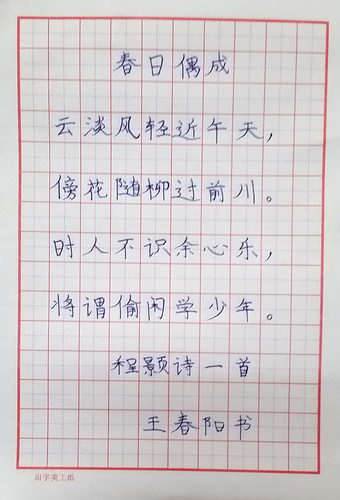 春日偶成
云淡风轻近午天，
傍花随柳过前川。
时人不识余心乐，
将谓偷闲学少年。
程颢诗一首
王春阳书
田字美工纸